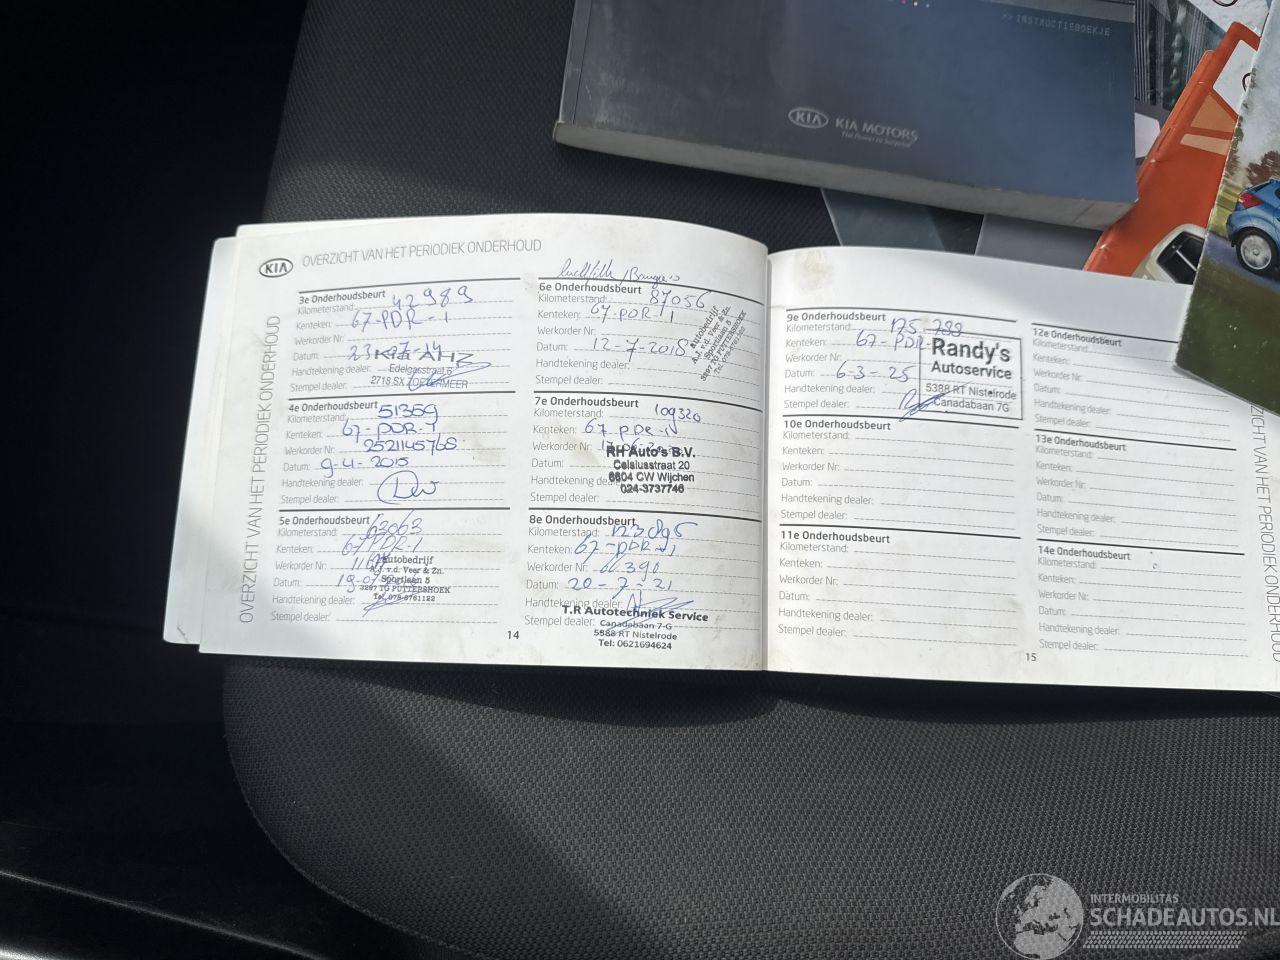 >> INSTRUCTIEBOEKJE
KIA KIA MOTORS
The Power to Surprise
KIA OVERZICHT VAN HET PERIODIEK ONDERHOUD
OVERZICHT VAN HET PERIODIEK ONDERHOUD
3e Onderhoudsbeurt
Kilometerstand: 42989
Kenteken: 67-PDR-1
Werkorder Nr:
Datum: 23-07-14
Handtekening dealer:
Stempel dealer:
KIA AHZ
Edelgasstraat 6
2718 SX ZOETERMEER
4e Onderhoudsbeurt
Kilometerstand: 51359
Kenteken: 67-PDR-1
Werkorder Nr: 252114576S
Datum: 9-4-2015
Handtekening dealer:
Stempel dealer:
5e Onderhoudsbeurt
Kilometerstand: 63063
Kenteken: 67PDR-1
Werkorder Nr:
Datum: 19-07
Handtekening dealer:
Stempel dealer:
Autobedrijf
A.J. v.d. Veer & Zn.
Sportlaan 5
3297 TG PUTTERSHOEK
Tel. 078-6761122
6e Onderhoudsbeurt
Kilometerstand: 87056
Kenteken: 67-PDR-1
Werkorder Nr:
Datum: 12-7-2018
Handtekening dealer:
Stempel dealer:
Autobedrijf
A.J. v.d. Veer & Zn.
Sportlaan 5
3297 TG PUTTERSHOEK
7e Onderhoudsbeurt
Kilometerstand: 109320
Kenteken: 67-PDR-1
Werkorder Nr:
Datum:
Handtekening dealer:
Stempel dealer:
RH Auto's B.V.
Celsiusstraat 20
6604 CW Wijchen
024-3737746
8e Onderhoudsbeurt
Kilometerstand: 123895
Kenteken: 67-PDR-1
Werkorder Nr: 60.390
Datum: 20-7-21
Handtekening dealer:
Stempel dealer:
T.R Autotechniek Service
Canadabaan 7-G
5388 RT Nistelrode
Tel: 0621694624
14
9e Onderhoudsbeurt
Kilometerstand: 175.788
Kenteken: 67-PDR-
Werkorder Nr:
Datum: 6-3-25
Handtekening dealer:
Stempel dealer:
Randy's
Autoservice
5388 RT Nistelrode
Canadabaan 7G
10e Onderhoudsbeurt
Kilometerstand:
Kenteken:
Werkorder Nr:
Datum:
Handtekening dealer:
Stempel dealer:
11e Onderhoudsbeurt
Kilometerstand:
Kenteken:
Werkorder Nr:
Datum:
Handtekening dealer:
Stempel dealer:
12e Onderhoudsbeurt
Kilometerstand:
Kenteken:
Werkorder Nr:
Datum:
Handtekening dealer:
Stempel dealer:
13e Onderhoudsbeurt
Kilometerstand:
Kenteken:
Werkorder Nr:
Datum:
Handtekening dealer:
Stempel dealer:
14e Onderhoudsbeurt
Kilometerstand:
Kenteken:
Werkorder Nr:
Datum:
Handtekening dealer:
Stempel dealer:
15
ZICHT VAN HET PERIODIEK ONDERHOUD
INTERMOBILITAS
SCHADEAUTOS.NL